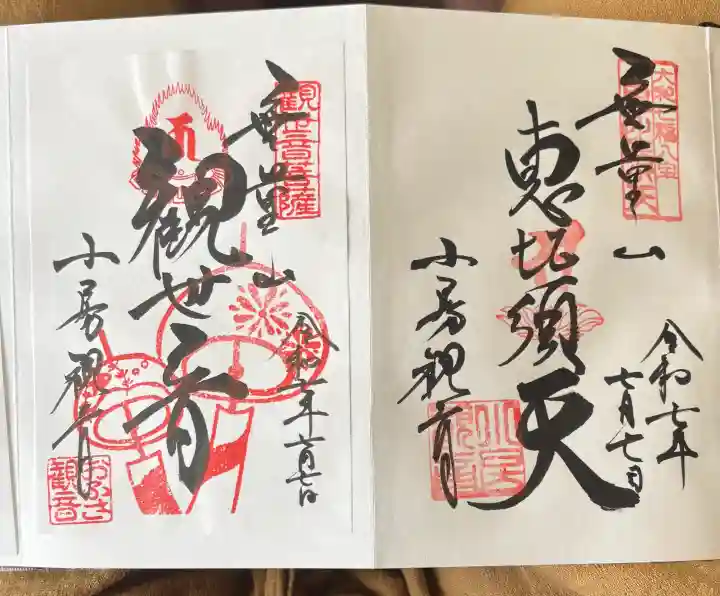 大和七福八宝
無量山
恵比須天
小房観音
令和七年
七月七日
観世音菩薩
無量山
観世音
小房観音
令和七年六月七日
おふさ
観音